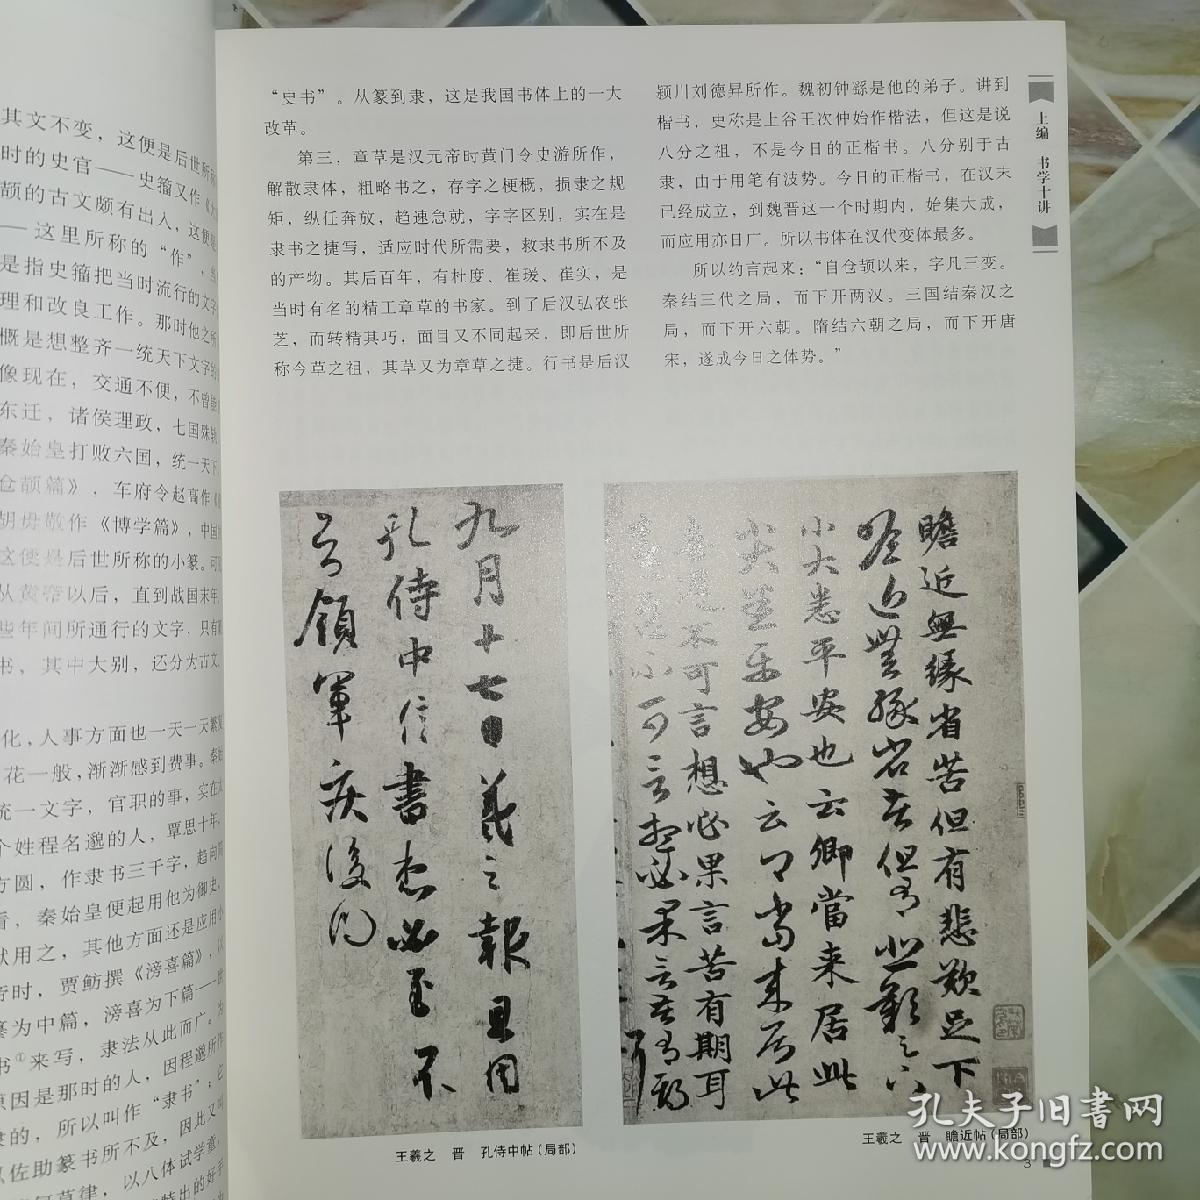 其文不变，这便是后世所称
时的史官——史籀又作《大
颉的古文颇有出入，这便是
— 这里所称的“作”，当
是指史籀把当时流行的文字
理和改良工作。那时他之所
概是想整齐一统天下文字的
像现在，交通不便，不曾能
东迁，诸侯理政，七国殊轨
秦始皇打败六国，统一天下
仓颉篇》，车府令赵高作《
胡毋敬作《博学篇》，中国
这便是后世所称的小篆。可
从黄帝以后，直到战国末年
些年间所通行的文字，只有
书，其中大别，还分大古文、
化，人事方面也一天一天繁复
花一般，渐渐感到费事。秦始
统一文字，官职的事，实在太
个姓程名邈的人，覃思十年，
方圆，作隶书三千字，趋向简
看，秦始皇便起用他为御史，
狱用之，其他方面还是应用小
帝时，贾鲂撰《滂喜篇》，以
纂为中篇，滂喜为下篇——
书①来写，隶法从此而广。为
原因是那时的人，因程邈所作
隶的，所以叫作“隶书”；它
以佐助篆书所不及，因此又叫
草律，以八体试学童，
特出的好手
“史书”。从篆到隶，这是我国书体上的一大
改革。
第三，章草是汉元帝时黄门令史游所作，
解散隶体，粗略书之，存字之梗概，损隶之规
矩，纵任奔放，趋速急就，字字区别，实在是
隶书之捷写，适应时代所需要，救隶书所不及
的产物。其后百年，有杜度、崔瑗、崔实，是
当时有名的精工章草的书家。到了后汉弘农张
芝，而转精其巧，面目又不同起来，即后世所
称今草之祖，其草又为章草之捷。行书是后汉
颍川刘德昇所作。魏初钟繇是他的弟子。讲到
楷书，史称是上谷王次仲始作楷法，但这是说
八分之祖，不是今日的正楷书。八分别于古
隶，由于用笔有波势。今日的正楷书，在汉末
已经成立，到魏晋这一个时期内，始集大成，
而应用亦日广。所以书体在汉代变体最多。
所以约言起来：“自仓颉以来，字凡三变。
秦结三代之局，而下开两汉。三国结秦汉之
局，而下开六朝。隋结六朝之局，而下开唐
宋，遂成今日之体势。”
上编 书学十讲
九月十七日羲之報且因
孔侍中信書想必至不
知領軍疾後問
瞻近無緣省苦但有悲歎足下
瞻近無緣省苦但有悲歎足下
小大悉平安也云卿當来居此
小大悉平安也云卿當来居此
喜遲不可言想必果言苦有期耳
喜遲不可言想必果言苦有期
王羲之 晋 孔侍中帖（局部）
王羲之 晋 瞻近帖（局部）
3
孔夫子旧书网
www.kongfz.com